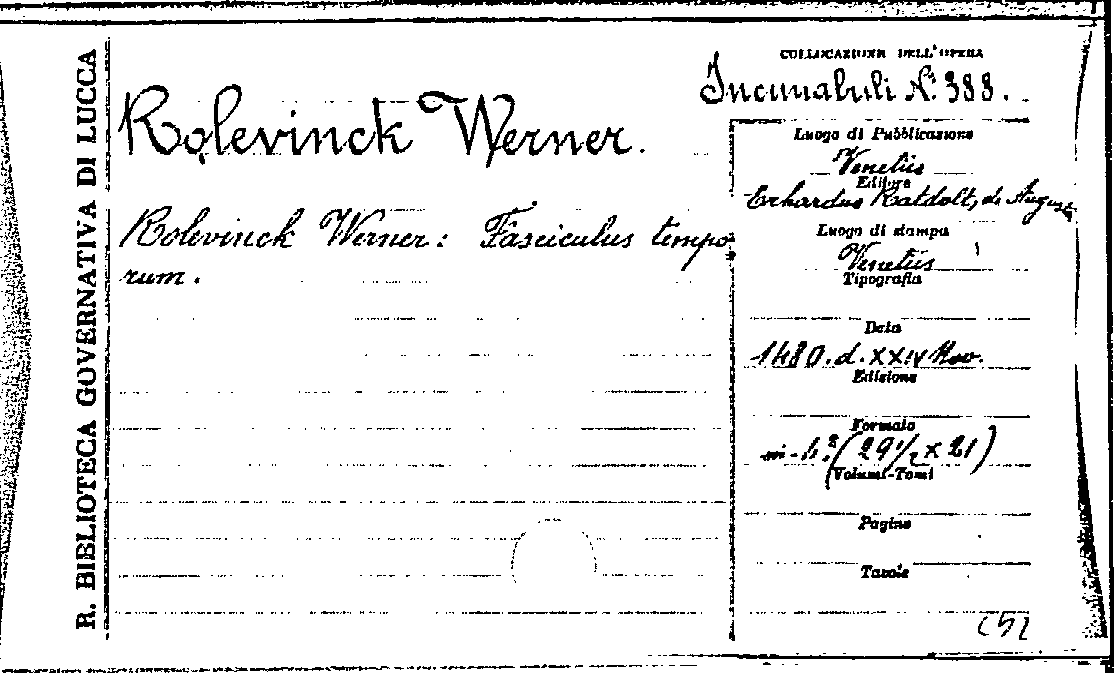 R. BIBLIOTECA GOVERNATIVA DI LUCCA
COLLOCAZIONE DELL'OPERA
Incunabuli N.º 388.
Rolevinck Werner.
Rolevinck Werner: Fasciculus tempo
rum.
Luogo di Pubblicazione
Venetiis
Editore
Erhardus Ratdolt, de Augus
Luogo di stampa
Venetiis
Tipografia
Data
1480. d. XXIV Nov.
Edizione
Formato
in-4.º (29 1/2 x 21)
Volumi-Tomi
Pagine
Tavole